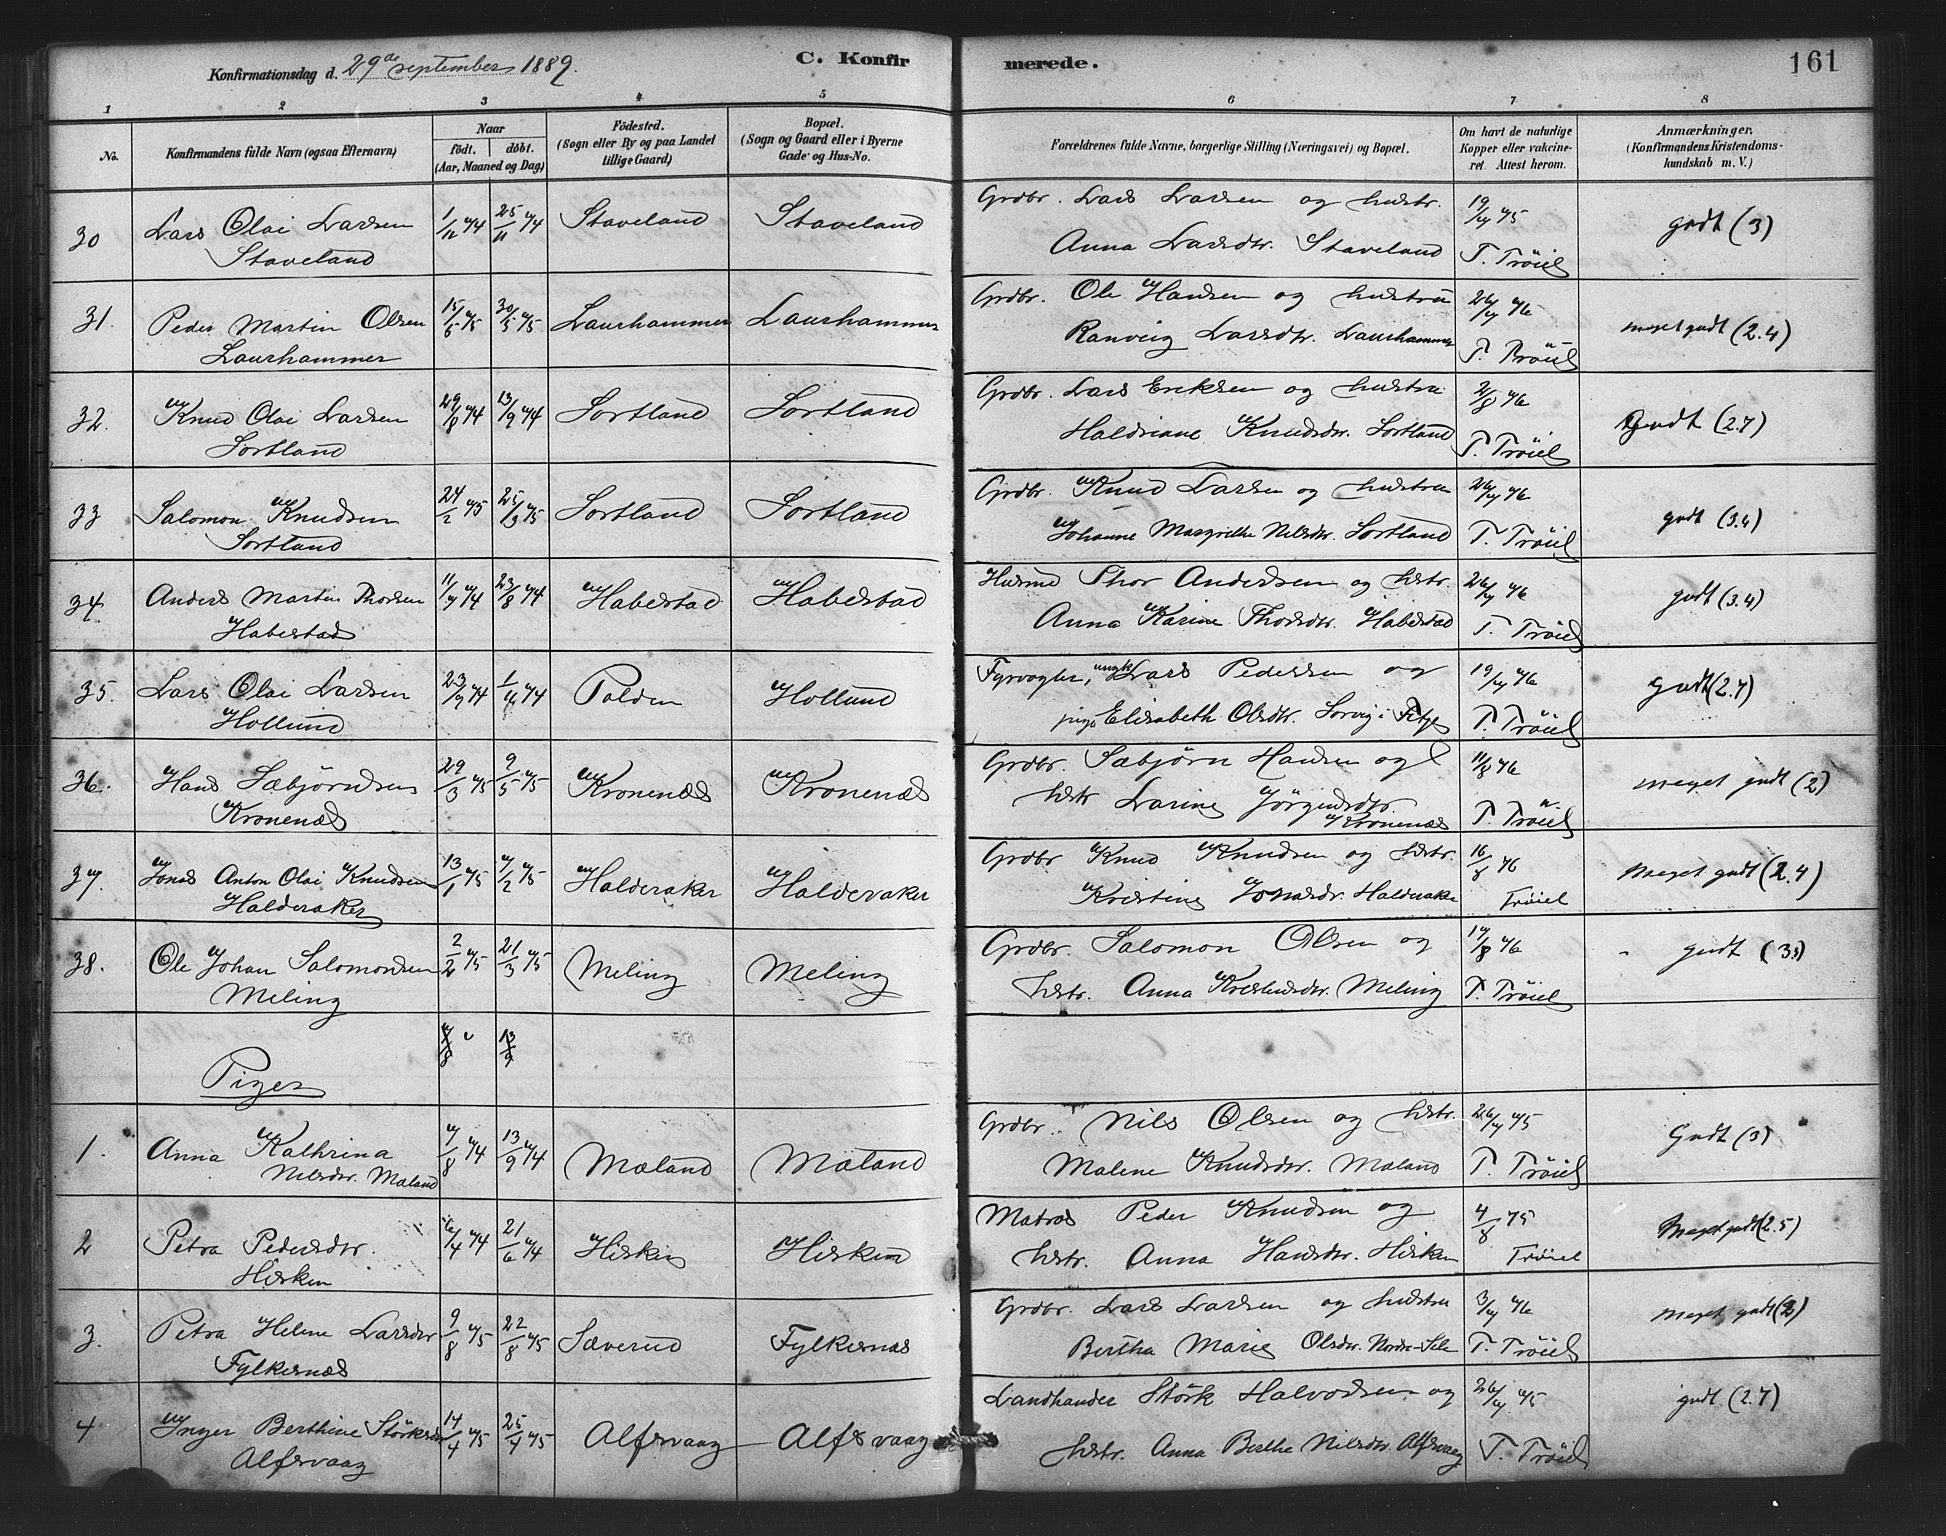 Konfirmationsdag d. 29de september 1889.
C. Konfirmerede.
161
1 2 3 4 5 6 7 8
No.
Konfirmandens fulde Navn (ogsaa Efternavn)
Naar
födt. döbt.
(Aar, Maaned og Dag)
Födested.
(Sogn eller By og paa Landet
tillige Gaard)
Bopæl.
(Sogn og Gaard eller i Byerne
Gade og Hus-No.
Forældrenes fulde Navne, borgerlige Stilling (Næringsvei) og Bopæl.
Om havt de naturlige
Kopper eller vakcine-
ret. Attest herom.
Anmærkninger,
(Konfirmandens Kristendoms-
kundskab m. V.)
30 Lars Olai Larsen 1/12 74 25/11 74 Staveland Staveland Grdbr. Lars Larsen og hustr. 19/7 75 godt (3)
Staveland Anna Larsdtr. Staveland T. Tröiel
31. Peder Martin Olsen 15/5 75 30/5 75 Laurhammer Laurhammer Grdbr. Ole Hansen og hustru 26/7 76 meget godt (2.4)
Laurhammer Ranveig Larsdtr. Laurhammer T. Tröiel
32. Knud Olai Larsen 29/8 74 13/9 74 Sortland Sortland Grdbr. Lars Eriksen og hustru 2/8 76 Godt (2.7)
Sortland Haldriane Knudsdtr. Sortland T. Tröiel
33 Salomon Knudsen 24/2 75 25/3 75 Sortland Sortland Grdbr. Knud Larsen og hustru 26/7 76 godt (3.4)
Sortland Johanne Margrethe Nilsdtr. Sortland T. Tröiel
34. Anders Martin Thorsen 11/7 74 23/8 74 Habestad Habestad Husmd Thor Andersen og hstr. 26/7 76 godt (3.4)
Habestad Anna Karine Thorsdtr. Habestad T. Tröiel
35. Lars Olai Larsen 23/9 74 1/11 74 Polden Hollund Fyrvogter, ungk. Lars Pedersen og 19/7 76 Godt (2.7)
Hollund pige Elisabeth Olsdtr. Sorvig i Fitje T. Tröiel
36. Hans Sæbjörnsen 29/3 75 9/5 75 Kronenæs Kronenæs Grdbr. Sæbjörn Hansen og 11/8 76 meget godt (2)
Kronenæs hstr Larine Jörgensdtr Kronenæs T. Tröiel
37. Jonas Anton Olai Knudsen 13/1 75 7/2 75 Halderaker Halderaker Grdbr Knud Knudsen og hstr. 16/8 76 Meget godt (2.4)
Halderaker Kristine Jonasdr. Halderaker Tröiel
38. Ole Johan Salomonsen 2/2 75 21/3 75 Meling Meling Grdbr. Salomon Olsen og 17/8 76 godt (3)
Meling hstr. Anna Meling T. Tröiel
7/8 13/9
Piger
1. Anna Kathrina 7/8 74 13/9 74 Mæland Mæland Grdbr. Nils Olsen og hstr. 26/7 75 Godt (3)
Nilsdtr. Mæland Malene Knudsdtr. Mæland T. Tröiel
2 Petra Pedersdtr. 16/4 74 21/6 74 Hisken Hisken Matros Peder Knudsen og 4/8 75 Meget godt (2.5)
Hisken hstr. Anna Hansdtr. Hisken Tröiel
3. Petra Helene Larsdtr 9/8 75 22/8 75 Sæverud Fylkesnæs Grdbr. Lars Larsen og hustru 3/7 76 meget godt (2)
Fylkesnæs Bertha Marie Olsdtr. Nordre-Sele T. Tröiel
4 Inger Berthine Störksdtr 14/4 75 25/4 75 Alfsvaag Alfsvaag Landhander Störk Halvorsen og 26/7 75 godt (2.7)
Alfsvaag hstr. Anna Bertha Nilsdtr. Alfsvaag T. Tröiel